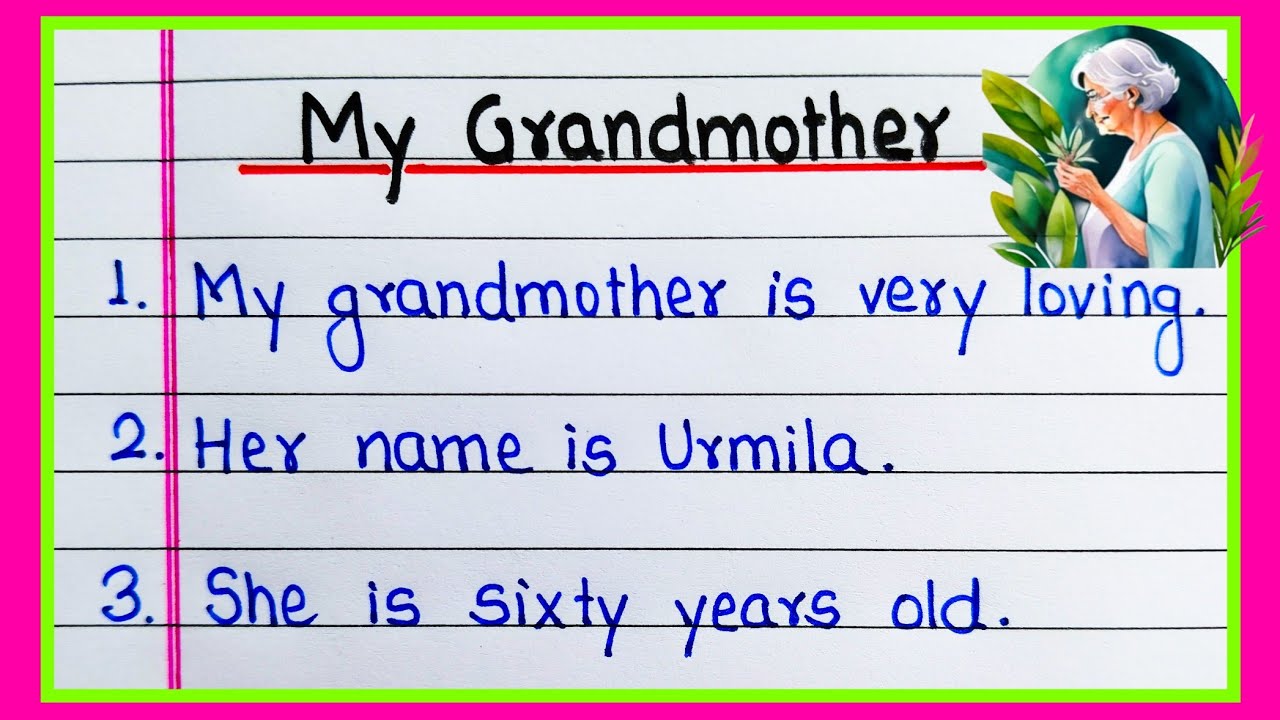 My Grandmother
1. My grandmother is very loving.
2. Her name is Urmila.
3. She is sixty years old.